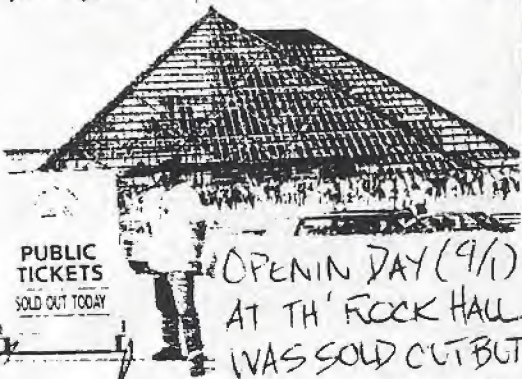 PUBLIC
TICKETS
SOLD OUT TODAY
OPENIN DAY (9/1)
AT TH' ROCK HALL
WAS SOLD OUT BUT